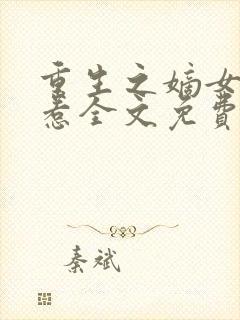 重生之嫡女
惹全文免费
秦斌